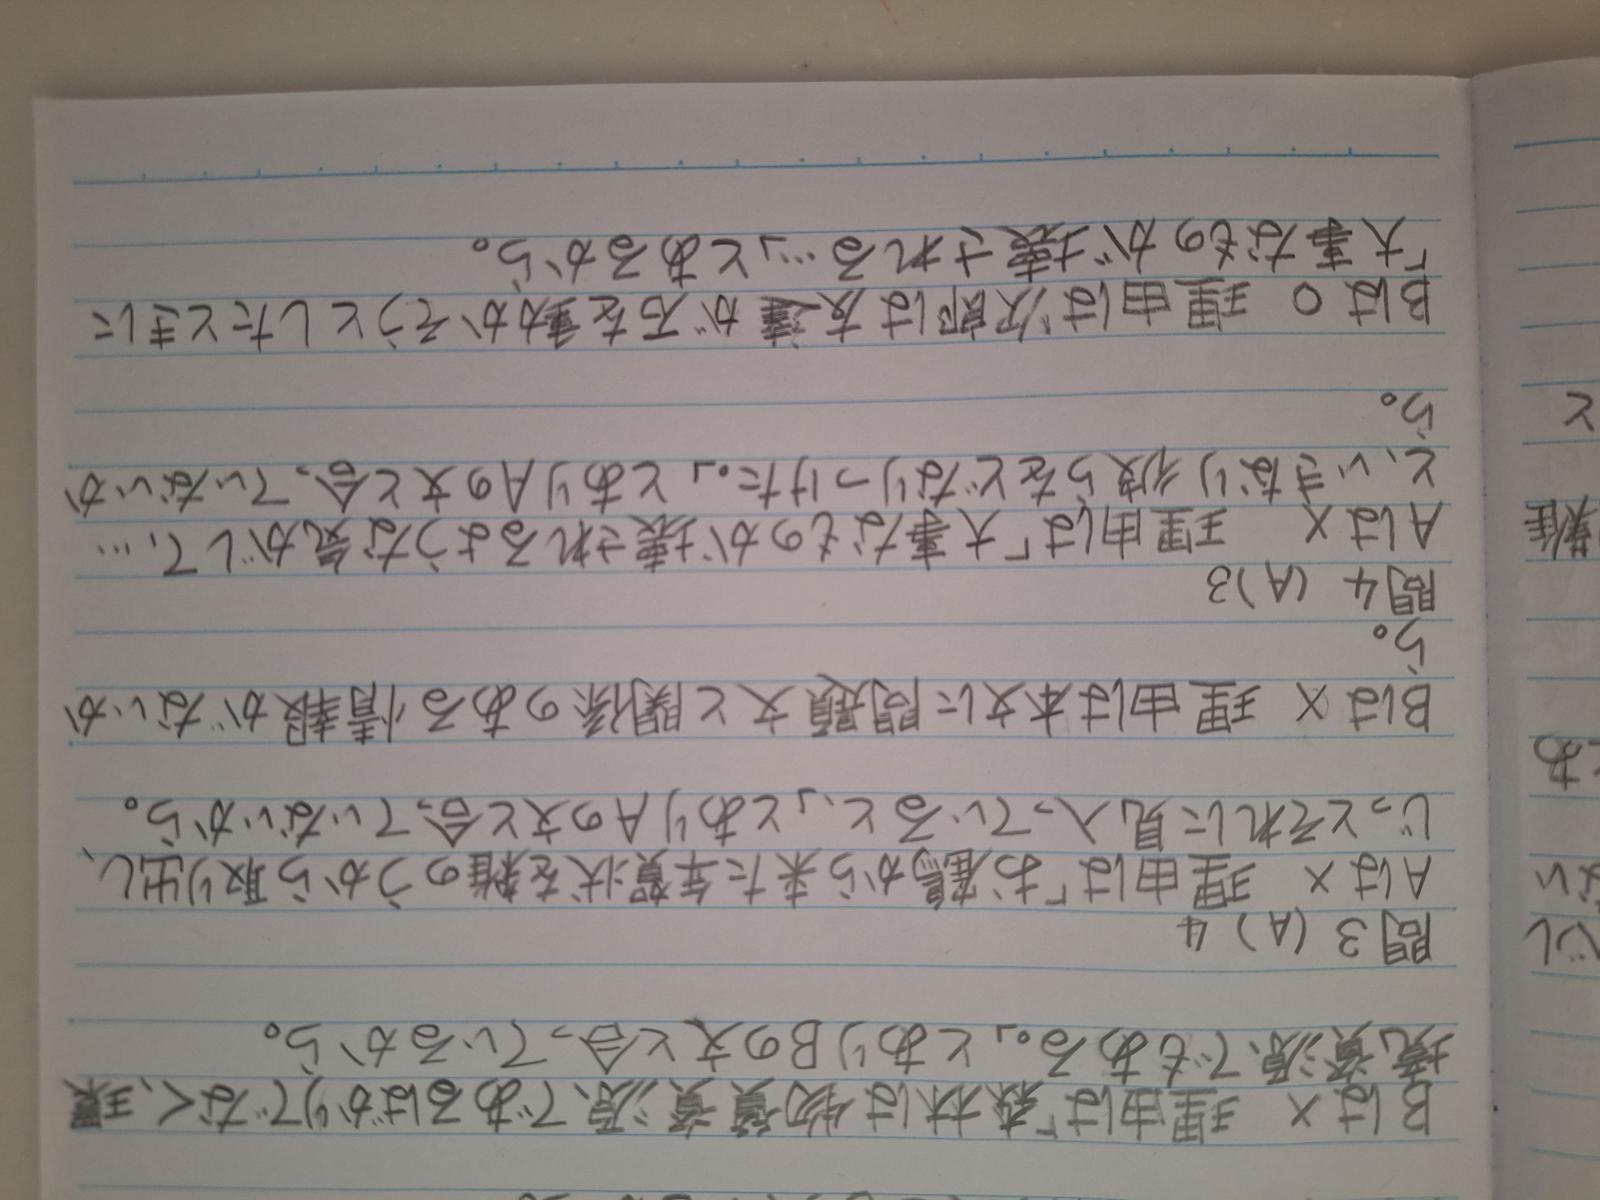 Bは× 理由は「森林は物質資源であるばかりでなく、環
境資源でもある。」とありBの文と合っているから。
問3 (A) 4
Aは× 理由は「お雇から来た年賀状を雑のうから取り出し、
じっとそれに見入っていると、」とありAの文と合っていないから。
Bは× 理由は本文に問題文と関係のある情報がないか
ら。
問4 (A) 3
Aは× 理由は「大事なものが壊されるような気がして、…
と、いきなり彼らをどなりつけた。」とありAの文と合っていないか
ら。
Bは○ 理由は次郎は友達が石を動かそうとしたときに
「大事なものが壊される…」とあるから。
と
難
とあ
ない
べし